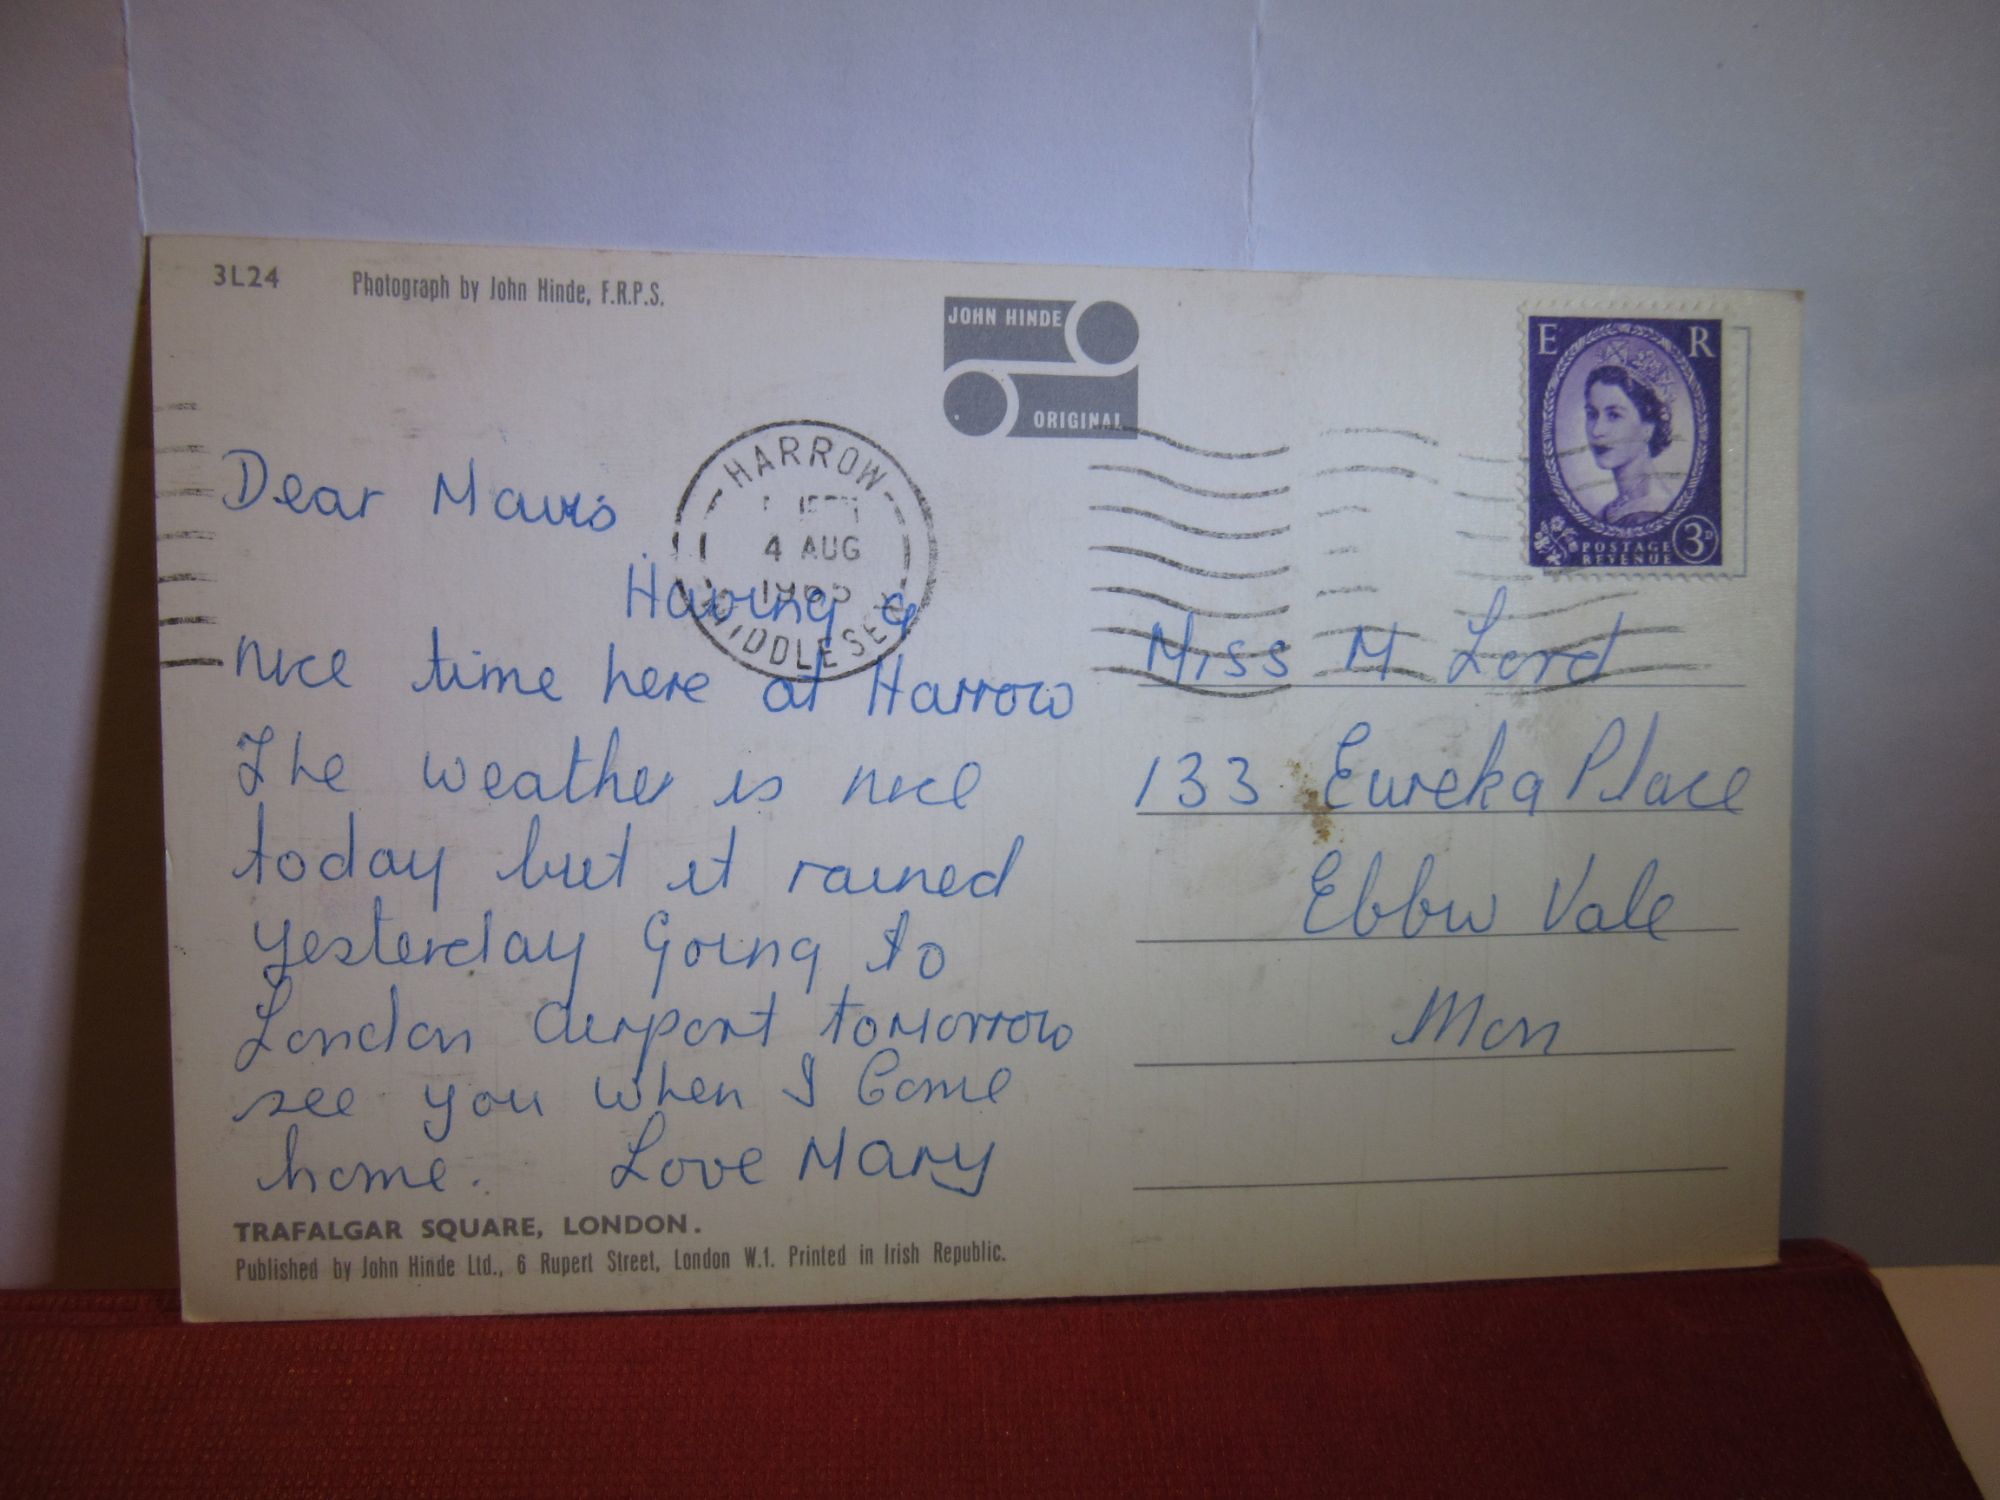 3L24 Photograph by John Hinde, F.R.P.S.
JOHN HINDE
ORIGINAL
E R
POSTAGE
REVENUE
3D
HARROW
4 AUG
MIDDLESEX
Dear Mavis
Having a
nice time here at Harrow
The weather is nice
today but it rained
yesterday Going to
London airport tomorrow
see you when I Come
home. Love Mary
Miss M Lord
133 Eureka Place
Ebbw Vale
Mon
TRAFALGAR SQUARE, LONDON.
Published by John Hinde Ltd., 6 Rupert Street, London W.1. Printed in Irish Republic.